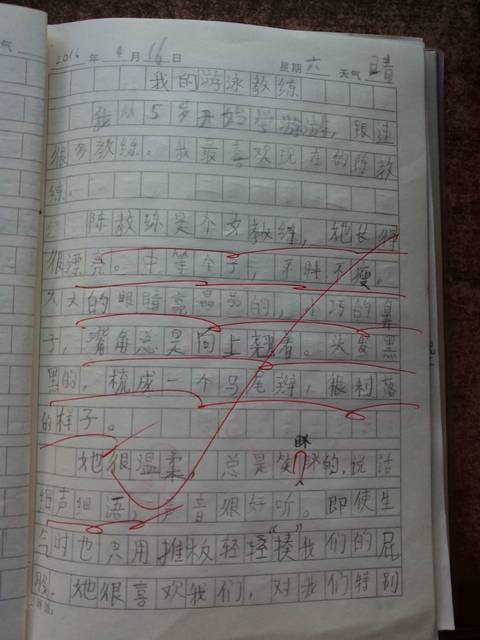 天气
2016年4月16日 星期六 天气晴
我的游泳教练
我从5岁开始学游泳,跟过
很多教练。我最喜欢现在的陈教
练。
陈教练是个女教练,她长得
很漂亮。中等个子,不胖不瘦。
大大的眼睛亮晶晶的,小巧的鼻
子,嘴角总是向上翘着。头发黑
黑的,梳成一个马尾辫,很利落
的样子。
她很温柔,总是笑眯眯的,说话
细声细语,声音很好听。即使生
气时也只用推板轻轻“揍”我们的屁
股。她很喜欢我们,对我们特别